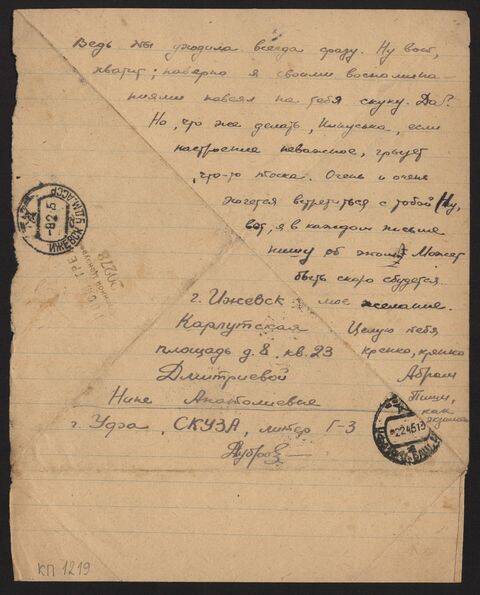 Ведь ты уходила всегда сразу. Ну вот,
хватит; наверно я своими воспомина-
ниями навеял на тебя скуку. Да?
Но, что же делать, Нинуська, если
настроение неважное, грызет
что-то тоска. Очень и очень
хочется встретиться с тобой. Ну,
вот, я в каждом письме
пишу об этом. Может
быть скоро сбудется
мое желание.
Целую тебя
крепко, крепко
Абрам
Пиши,
как
г. Ижевск
Карлутская
площадь д. 8. кв. 23
Дмитриевой
Нине Анатолиевне
г. Уфа СКУЗА, литер Г-3
ИЖЕВСК УДМ. АССР
-8 2 45
Военной Цензурой
КП 1219